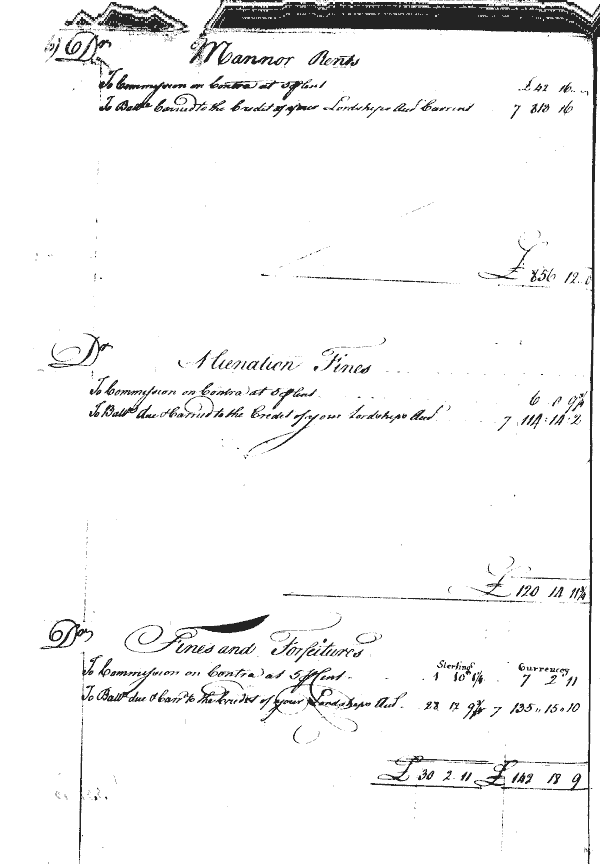 6 Dr Mannor Rents
To Commission on Contra at 5 ⅌ Cent £42 16
To Ballce Carried to the Credit of your Lordships Accᵗ Currant 7 813 16
£ 856 12
Dr Alienation Fines
To Commission on Contra at 5 ⅌ Cent 6 8 9¾
To Ballce due & Carried to the Credit of your Lordships Accᵗ 7 114 14 2
£ 120 14 11¾
Dr Fines and Forfeitures
Sterling Currencey
To Commission on Contra at 5 ⅌ Cent 1 10 1¼ 7 2 11
To Ballce due & Carrᵈ to the Credit of your Lordships Accᵗ 28 12 9¾ 7 135 15 10
£ 30 2 11 £ 142 18 9